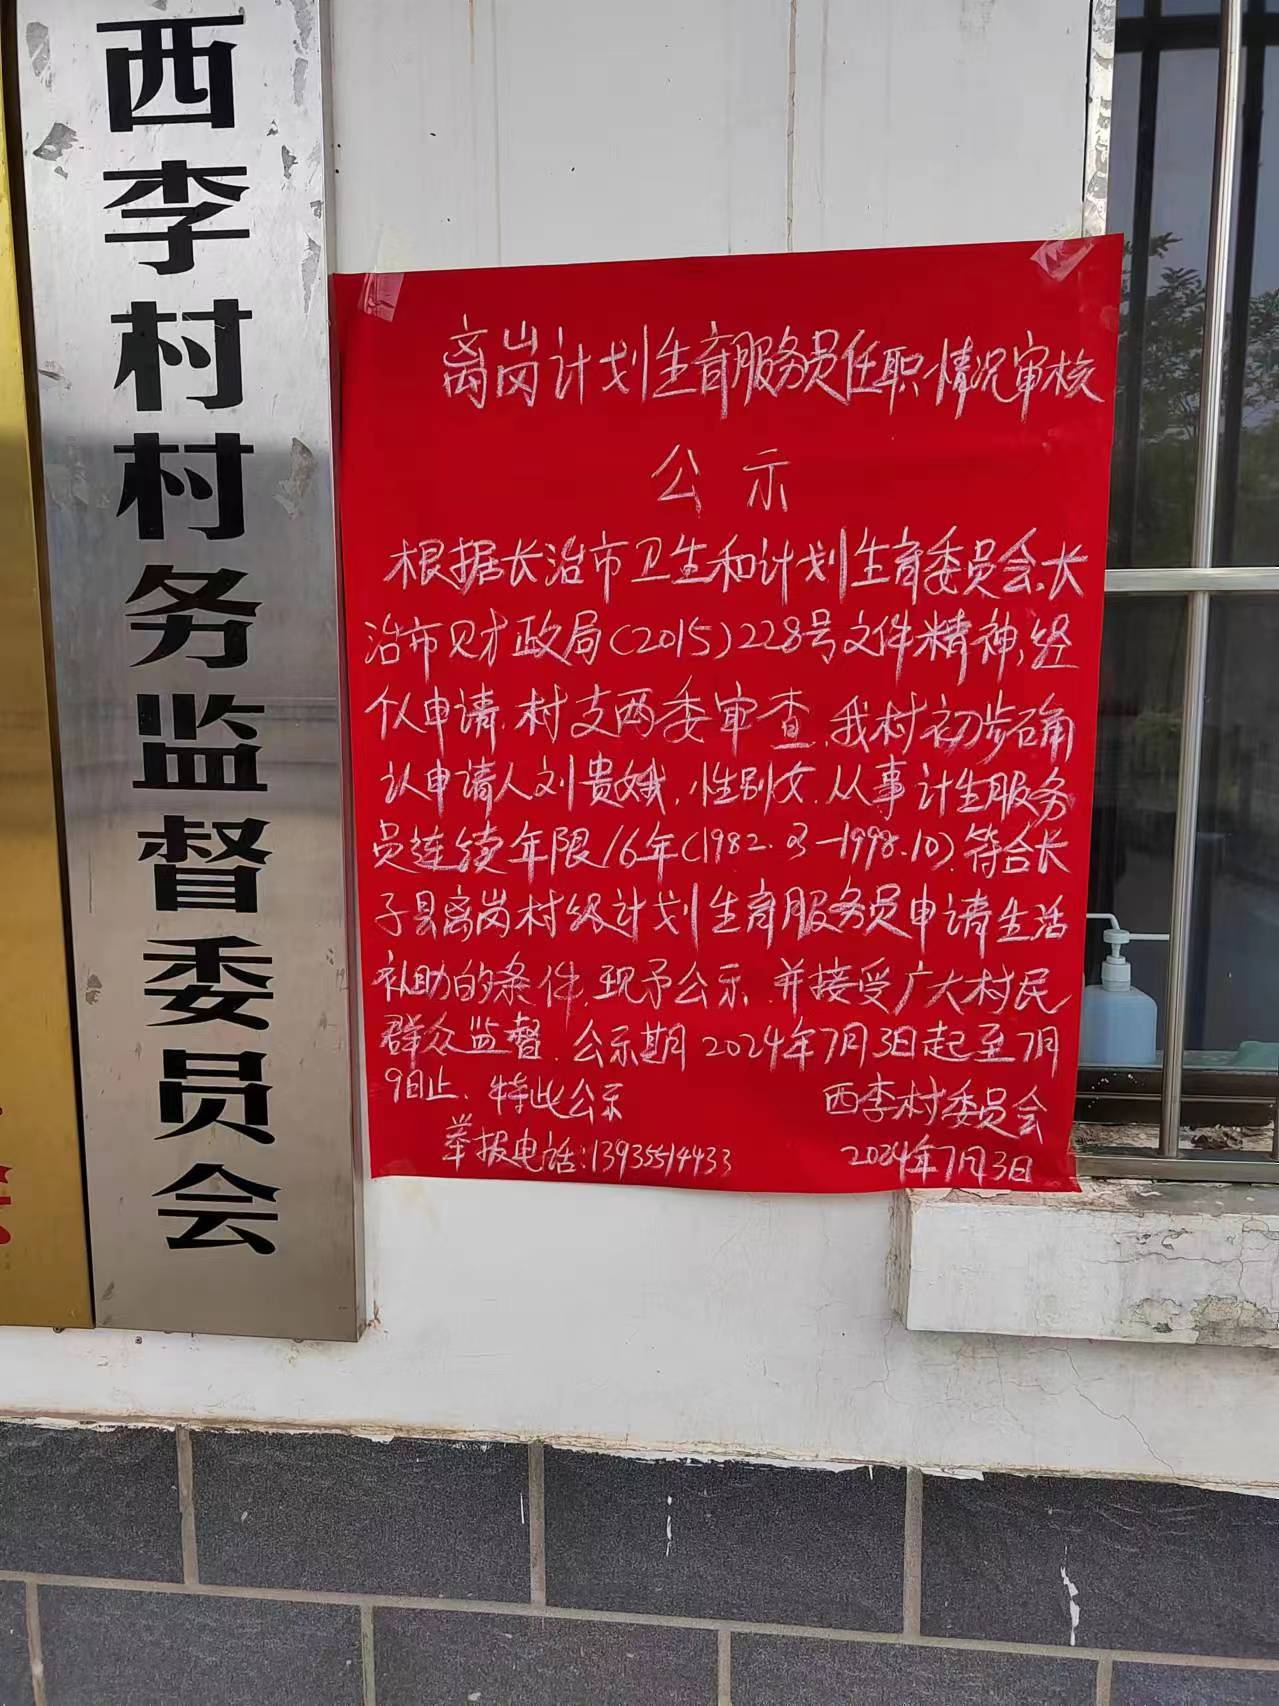 西李村村务监督委员会
离岗计划生育服务员任职情况审核
公示
根据长治市卫生和计划生育委员会、长
治市财政局(2015)228号文件精神,经
个人申请.村支两委审查.我村初步确
认申请人刘贵娥.性别女.从事计生服务
员连续年限16年(1982.3-1998.10).符合长
子县离岗村级计划生育服务员申请生活
补助的条件.现予公示.并接受广大村民
群众监督.公示期2024年7月3日起至7月
9日止、特此公示
西李村委员会
举报电话:13935514433
2024年7月3日